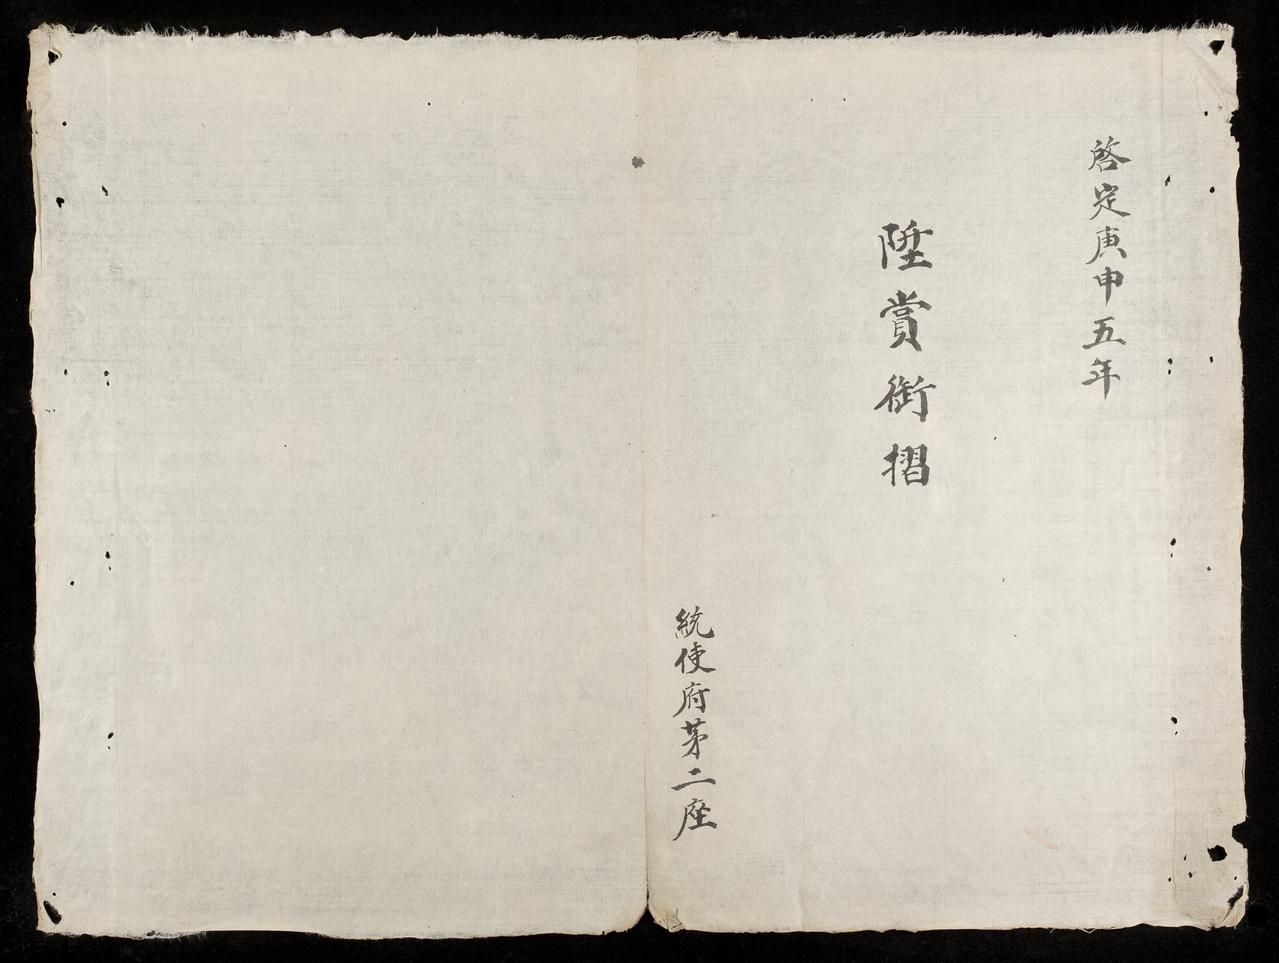 啓定庚申五年
陞賞銜摺
統使府苐二座